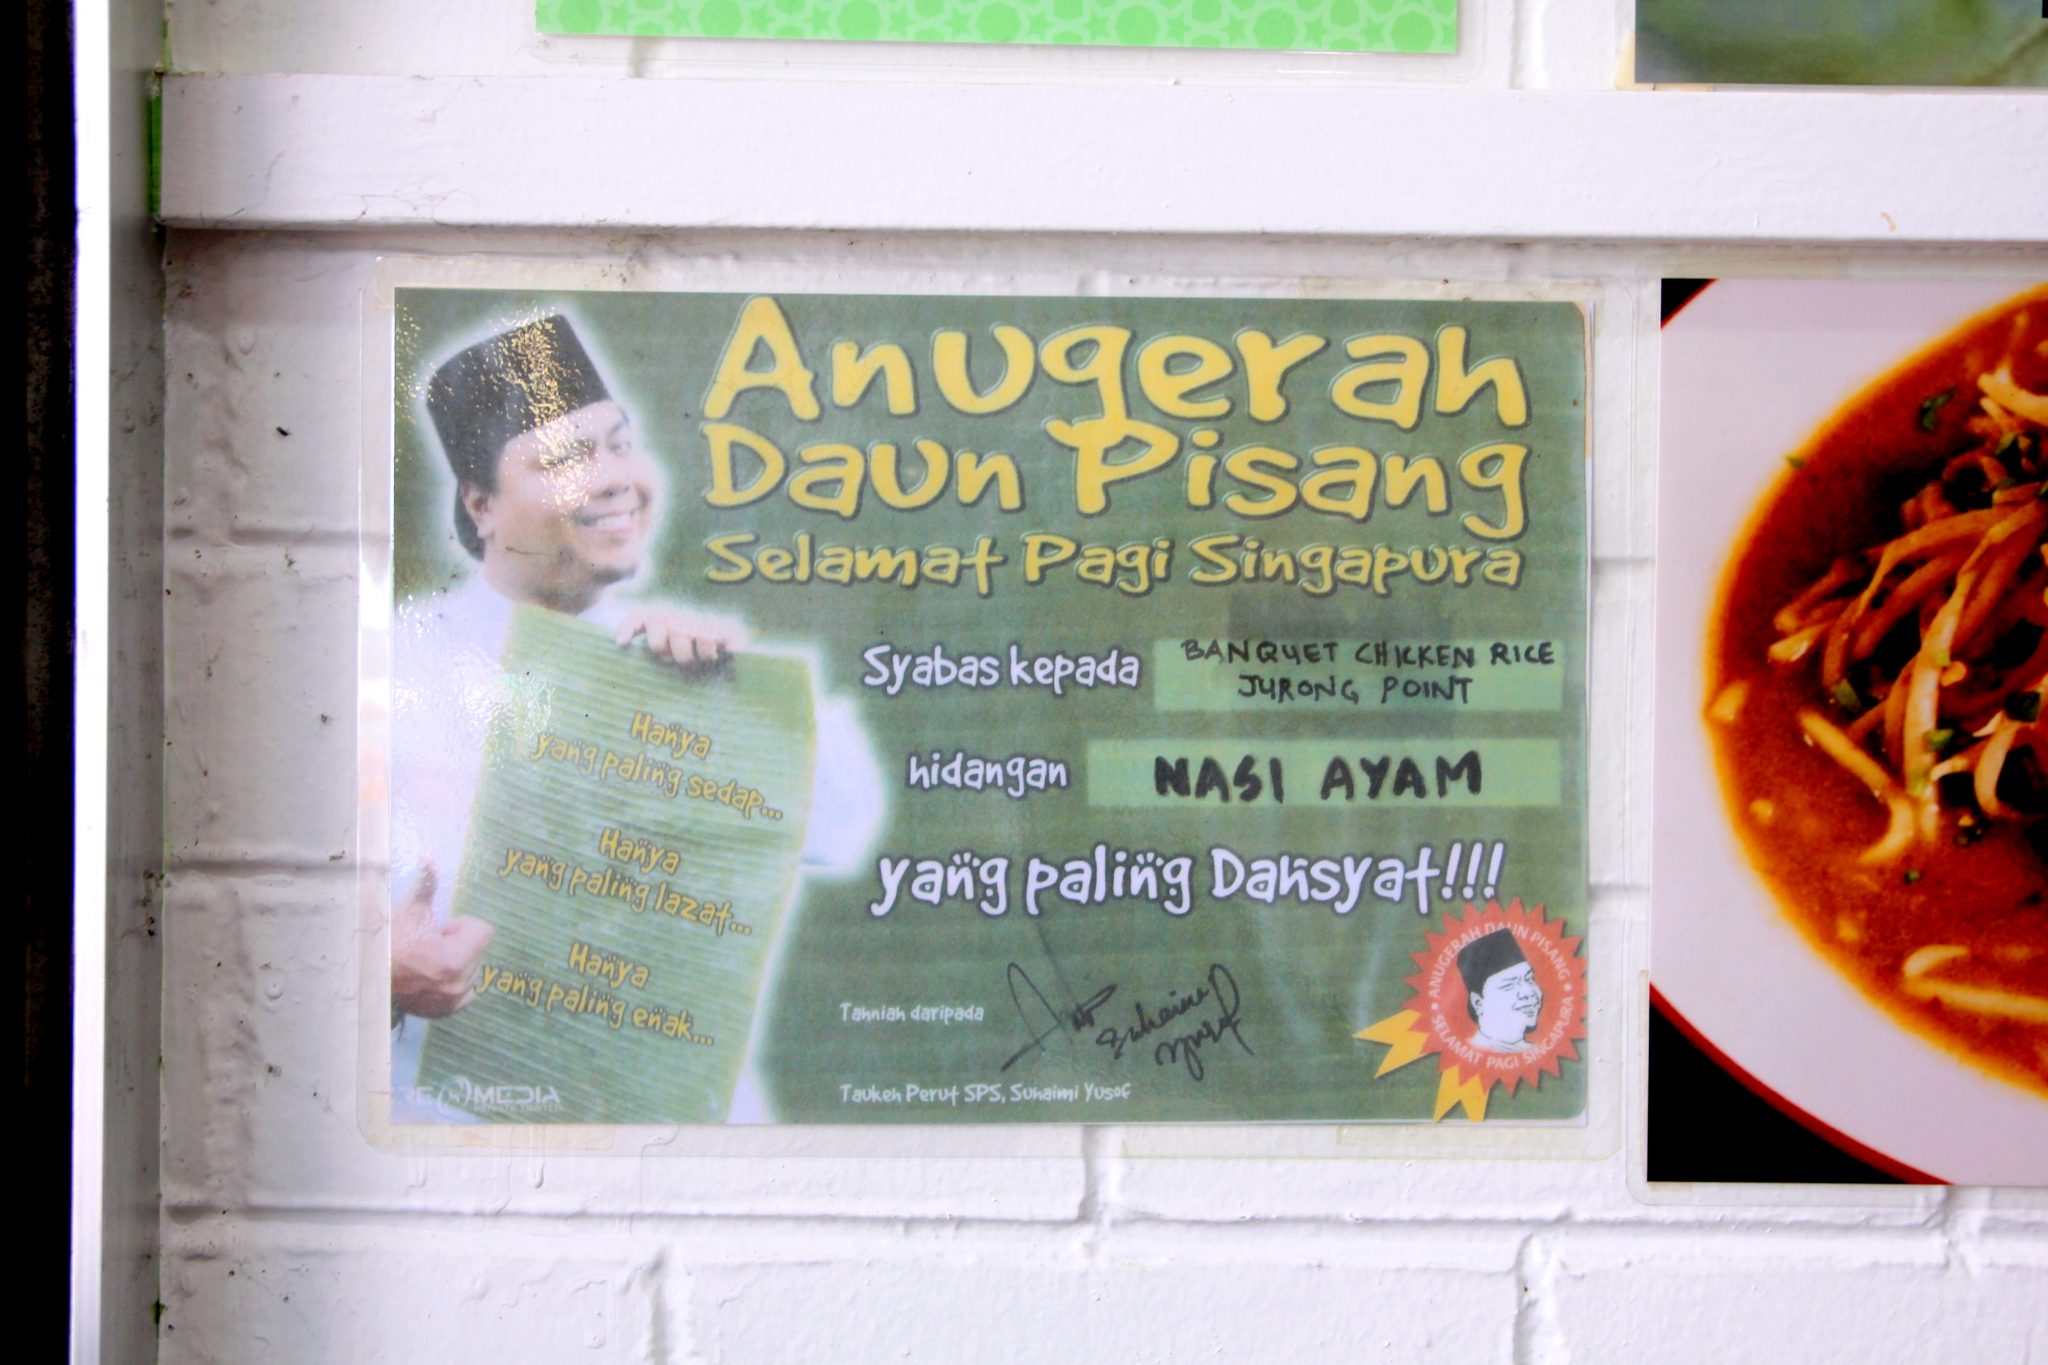 Anugerah
Daun Pisang
Selamat Pagi Singapura
Syabas kepada
BANQUET CHICKEN RICE
JURONG POINT
hidangan
NASI AYAM
yang paling Dahsyat!!!
Hanya
yang paling sedap...
Hanya
yang paling lazat...
Hanya
yang paling enak...
Tahniah daripada
Suhaimi
Yusof
Taukeh Perut SPS, Suhaimi Yusof
MEDIA
PRIVATE LIMITED
ANUGERAH DAUN PISANG
SELAMAT PAGI SINGAPURA